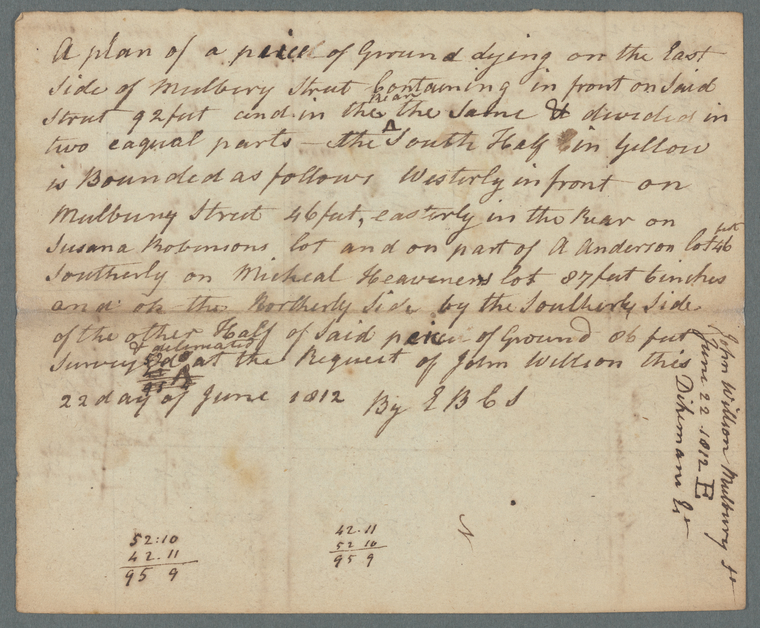 A plan of a peice of Ground dying on the East
Side of Mulbery Street Containing in front on Said
Street 92 feet and in the Rear the Same & divided in
two eaqual parts - the South Half in Yellow
is Bounded as follows Westerly in front on
Mulbury Street 46 feet, easterly in the Rear on
Susana Robinsons lot and on part of A Anderson lot 46 feet
Southerly on Micheal Heaveners lot 87 feet 6 inches
and on the Northerly Side by the Southerly Side
of the other Half of Said peice of Ground 86 feet
Surveyed & delineated at the Request of John Willson this
22 day of June 1812 By E B C S
John Willson Mulbury St
June 22 1812 E
Dikeman Er
52:10
42.11
95 9
42.11
52 10
95 9